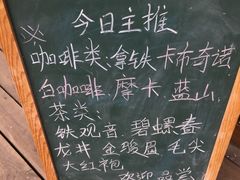 ※ 今日主推
咖啡类:拿铁 卡布奇诺
白咖啡.摩卡.蓝山.
茶类:
铁观音.碧螺春
龙井 金骏眉 毛尖
大红袍 欢迎品尝